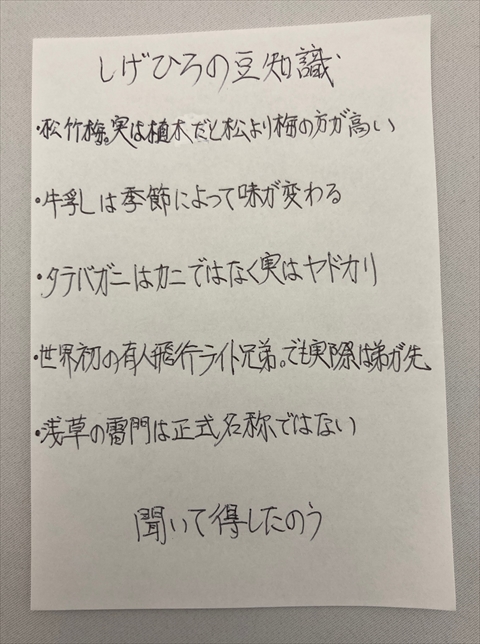 しげひろの豆知識
・松竹梅。実は植木だと松より梅の方が高い
・牛乳は季節によって味が変わる
・タラバガニはカニではなく実はヤドカリ
・世界初の有人飛行ライト兄弟。でも実際は弟が先
・浅草の雷門は正式名称ではない
聞いて得したのう